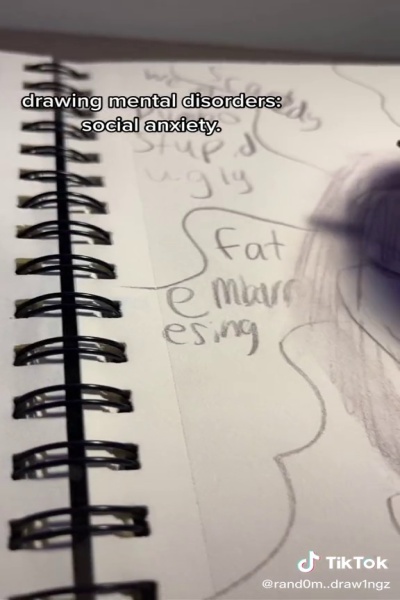 drawing mental disorders:
social anxiety.
stupid
ugly
fat
embarr
esing
TikTok
@rand0m..draw1ngz